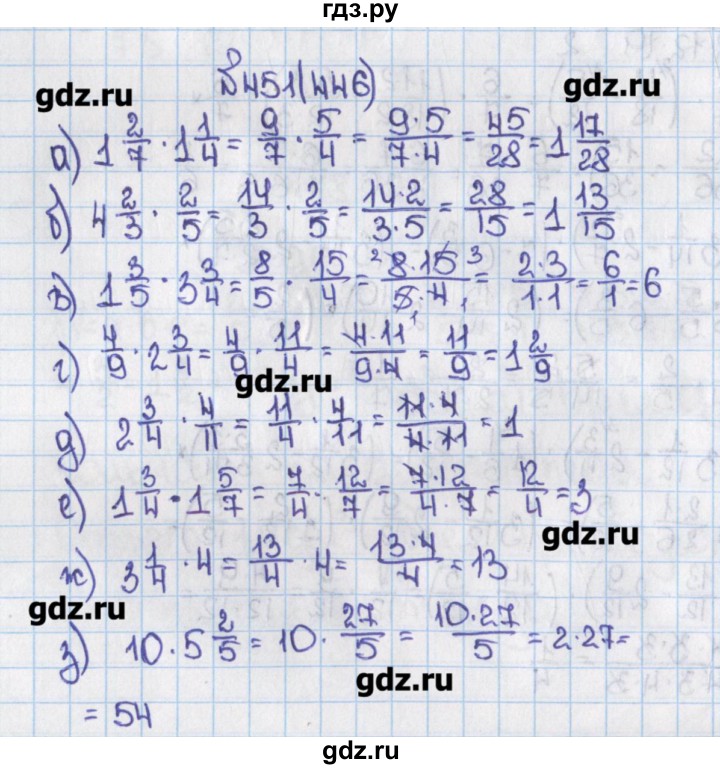 гдз.ру
№451(446)
gdz.ru gdz.ru
а) 1 2/7 · 1 1/4 = 9/7 · 5/4 = 9·5/7·4 = 45/28 = 1 17/28
б) 4 2/3 · 2/5 = 14/3 · 2/5 = 14·2/3·5 = 28/15 = 1 13/15
в) 1 3/5 · 3 3/4 = 8/5 · 15/4 = ²8·15³/5₁·4₁ = 2·3/1·1 = 6/1 = 6
г) 4/9 · 2 3/4 = 4/9 · 11/4 = 4·11/9·4 = 11/9 = 1 2/9
gdz.ru
д) 2 3/4 · 4/11 = 11/4 · 4/11 = 11·4/4·11 = 1
е) 1 3/4 · 1 5/7 = 7/4 · 12/7 = 7·12/4·7 = 12/4 = 3
gdz.ru
ж) 3 1/4 · 4 = 13/4 · 4 = 13·4/4 = 13
gdz.ru
з) 10 · 5 2/5 = 10 · 27/5 = 10·27/5 = 2·27=
gdz.ru
= 54
gdz.ru